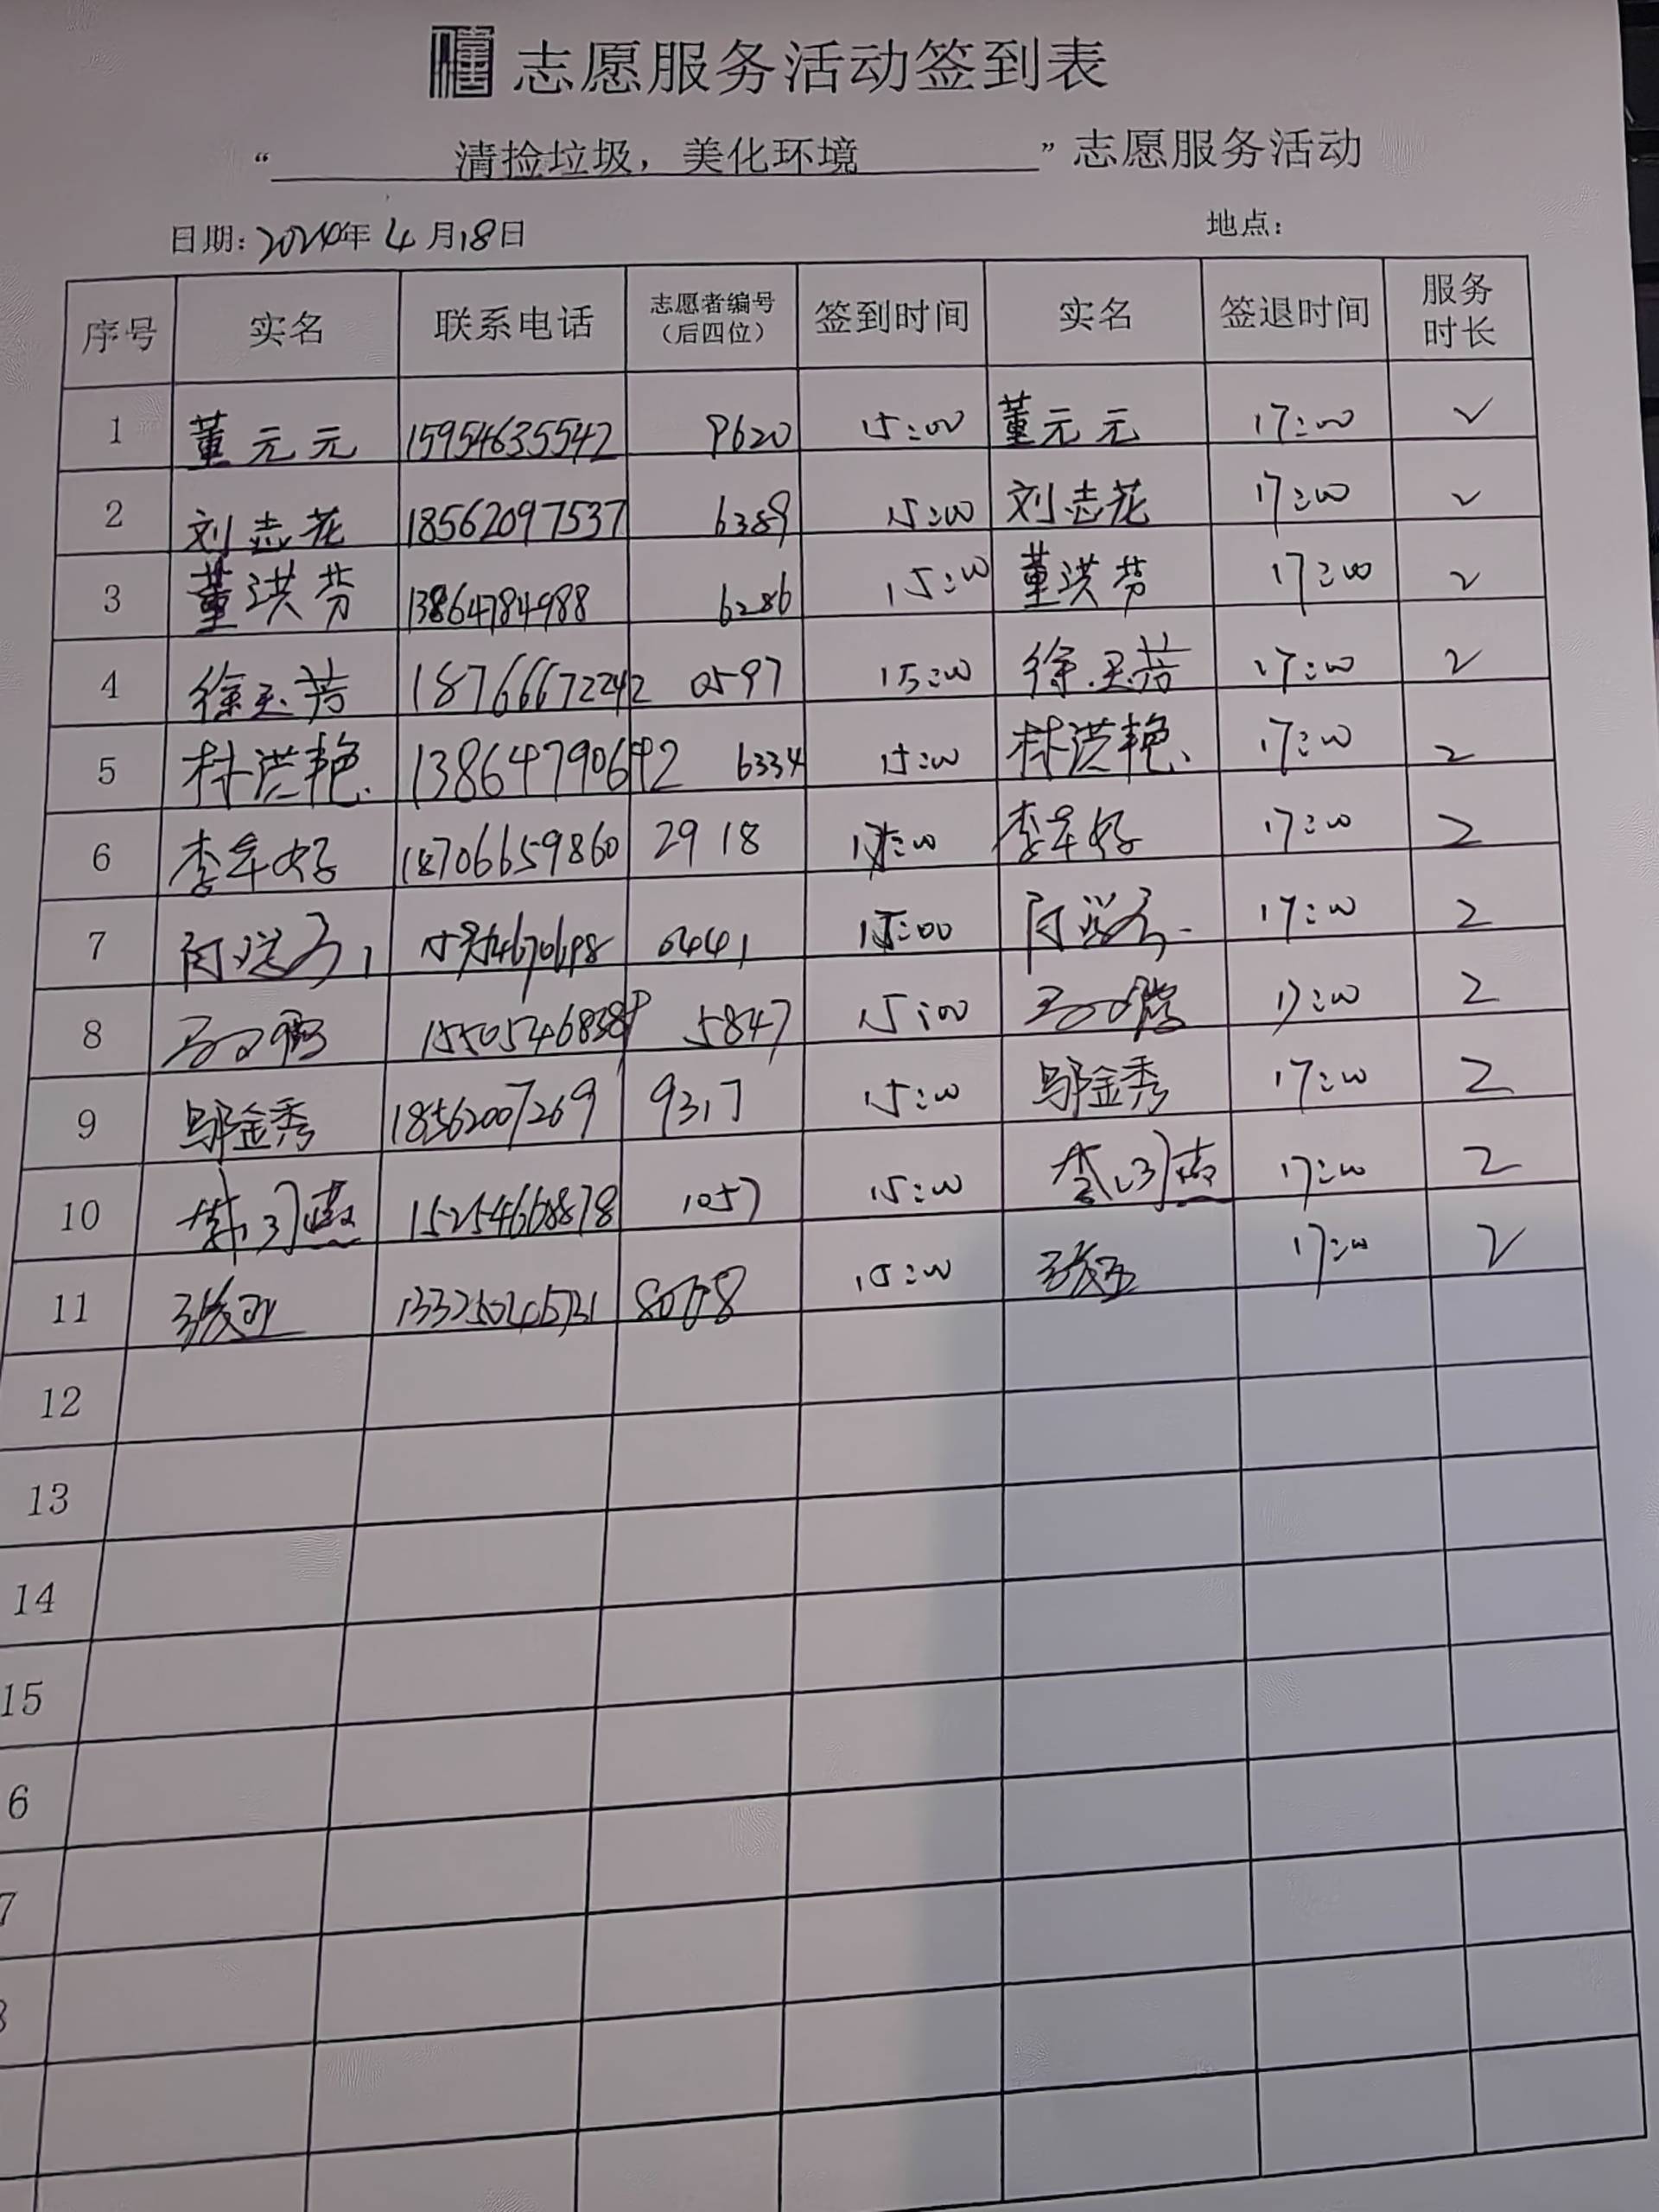 志愿服务活动签到表
“清捡垃圾，美化环境”志愿服务活动
日期：2024年4月18日 地点：
序号 实名 联系电话 志愿者编号（后四位） 签到时间 实名 签退时间 服务时长
1 董元元 15954635542 9620 15:00 董元元 17:00 2
2 刘志花 18562097537 6389 15:00 刘志花 17:00 2
3 董洪芬 13864784988 6286 15:00 董洪芬 17:00 2
4 徐玉芳 18766672242 0597 15:00 徐玉芳 17:00 2
5 林洪艳 13864790642 6334 15:00 林洪艳 17:00 2
6 李年好 18706659860 2918 15:00 李年好 17:00 2
7 0441 15:00 17:00 2
8 5847 15:00 17:00 2
9 邬金秀 18562007269 9317 15:00 邬金秀 17:00 2
10 15254668878 1057 15:00 17:00 2
11 15:00 17:00 2
12
13
14
15
6
7